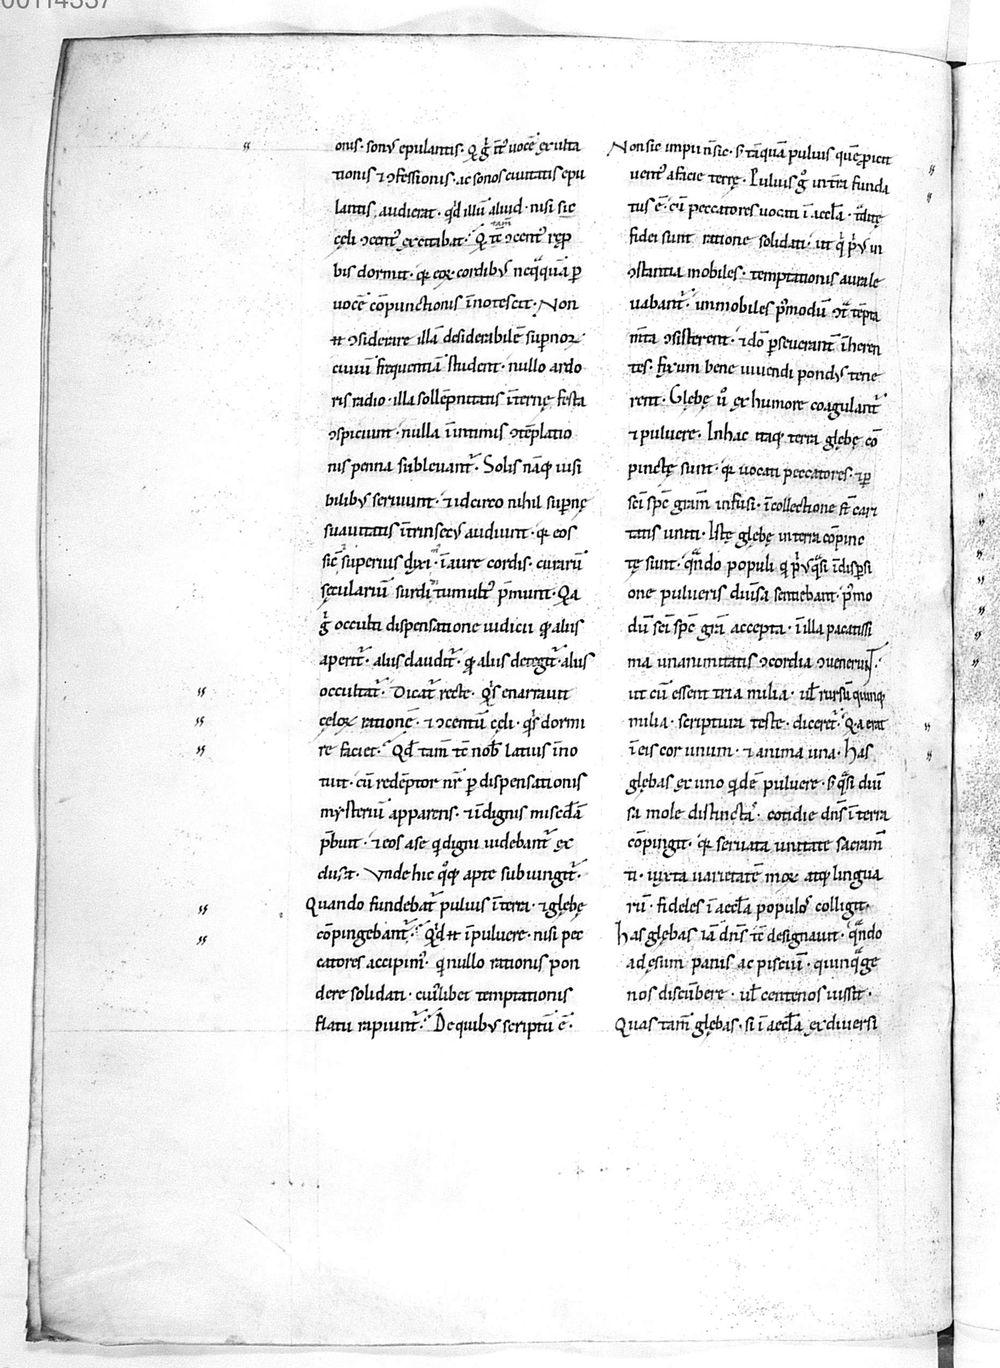 onis· sonus epulantis· Q g̊ īt uocē exulta
tionis ⁊ ɔfessionis· ac sonos ciuitatis epu
lantis, audierat· qd illū aliud· nisi sic
cęli ɔcent᷒ excitabat· Q tam̄ te ɔcent᷒ rep̱
bis dormit· qa eoꝝ cordibus neq̄quā p̱
uocē cōpunctionis īnotescit· Non
n̄ ɔsiderare illā desiderabilē sup̱noꝝ
ciuiū frequentiā student· nullo ardo
ris radio· illa sollēpnitatis īternę festa
ɔspiciunt· nulla īintimis ɔtēplatio
nis penna subleuant᷒· Solis nāq; uisi
bilibus seruiunt· ⁊ idcirco nihil sup̱nę
suauitatis ītrinsecus audiunt· qa eos
sic̄ superius dixi· ī aure cordis· curarū
sęculariū surdi tumult᷒ p̄munt· Qa
g̊ occulti dispensatione iudicii qd aliis
aperit᷒· aliis claudit᷒· qd aliis detegit᷒· aliis
occultat᷒· Dicat᷒ recte· Q̇s enarrauit
cęloꝝ rationē· ⁊ ɔcentū cęli· q̇s dormi
re faciet· Qd tam̄ tē nob̄ latius īno
tuit· cū redēptor nr̄ p̱ dispensationis
mysteriū apparens· ⁊ īdignis mis̄cdīā
p̄buit· ⁊ eos a se qi digni uidebant᷒ ex
clusit· Vnde hic q̊q; apte subiungit᷒·
Quando fundebat᷒ puluis ī terra· ⁊ glębę
cōpingebant᷒· Qd n̄ ī puluere· nisi pec
catores accipim᷒· qi nullo rationis pon
dere solidati· cui᷒libet temptationis
flatu rapiunt᷒· De quibus scriptū ē·
Non sic impii n̄ sic· s; tāquā puluis quē p̱icit
uent᷒ a facie terrę· Puluis g̊ in trā funda
tus ē· cū peccatores uocati ī aeccl̄a· t̄ditę
fidei sunt ratione solidati· ut qi p̱us in
ɔstantia mobiles· temptationis aura le
uabant᷒· immobiles p̄modū ɔt̄ tēpta
m̄ta ɔsisterent· ⁊ dō p̱seuerant᷒ īheren
tes· fixum bene uiuendi pondus tene
rent· Glębę u̅ ex humore coagulant᷒
⁊ puluere· In hac itaq; terra glębę cō
pinctę sunt· qa uocati peccatores· ⁊ p̱
sc̄i sp̄c gr̄am infusi· ī collectione s̄t cari
tatis uniti· Istę glębę in terra cōpinc
tę sunt· q̄ndo populi qi p̱us q̄si īdisp̱si
one pulueris diūsa sentiebant· p̄mo
dū sc̄i sp̄c gr̄a accepta· ī illa pacatissi
ma unanimitatis ɔcordia ɔuenerunt·
ut cū essent tria milia· ul̄ rursū quinq;
milia· scriptura teste· diceret᷒· Qa erat
ī eis cor unum· ⁊ anima una· Has
glębas ex uno qidē puluere· s; q̄si diū
sa mole distinctas· cotidie dn̄s ī terra
cōpingit· qa seruata unitate sacram̄
ti· iuxta uarietatē moꝝ atq; lingua
rū· fideles ī aeccl̄a populos colligit·
Has glębas iā dn̄s tē designauit· q̄ndo
ad esum panis ac pisciū· quinq̄ge
nos discūbere· ul̄ centenos iussit·
Quas tam̄ glębas· si ī aeccl̄a ex diuersi